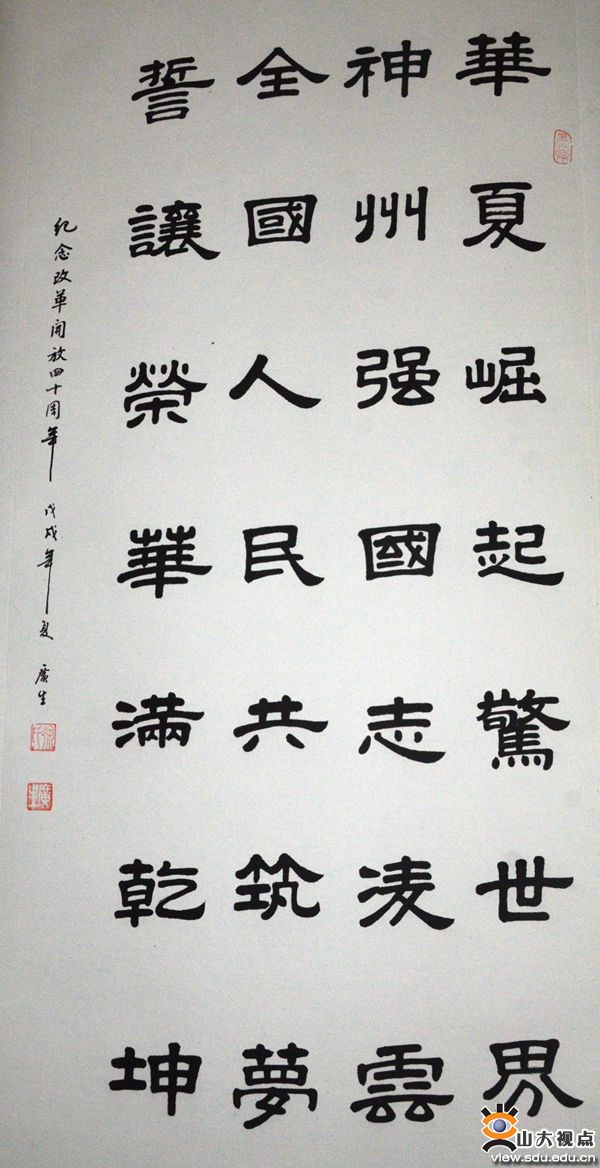 華夏崛起驚世界
神州强國志凌雲
全國人民共筑夢
誓讓榮華滿乾坤
纪念改革開放四十周年 戊戌年夏 廣生
廣生
山大视点
view.sdu.edu.cn